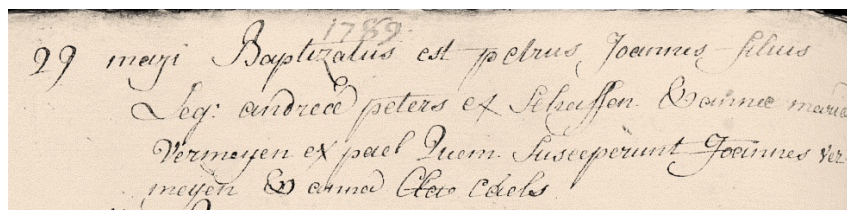 1789.
29 maji Baptizatus est petrus Joannes filius
Leg: andreæ peters ex Schaffen. & annæ mariæ
Vermeyen ex pael Quem Susceperunt Joannes ver-
meyen & anna Claes